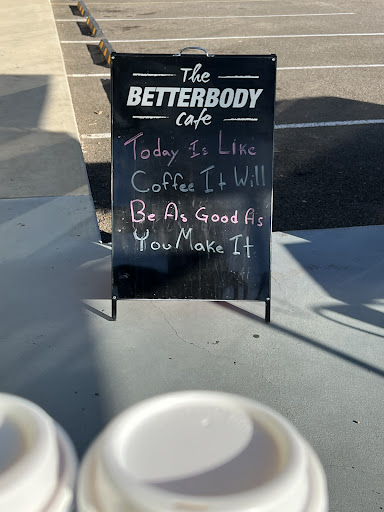 The
BETTERBODY
Cafe
Today Is Like
Coffee It Will
Be As Good As
You Make It